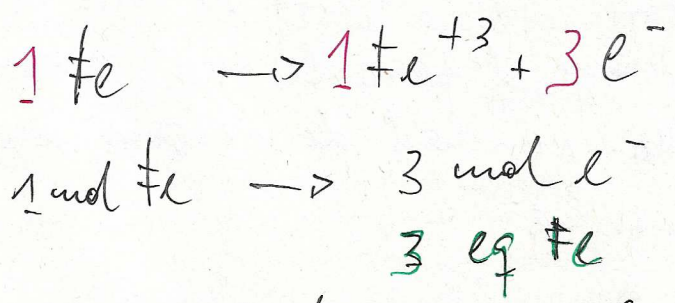 1 Fe → 1 Fe⁺³ + 3 e⁻
1 mol Fe → 3 mol e⁻
3 eq Fe